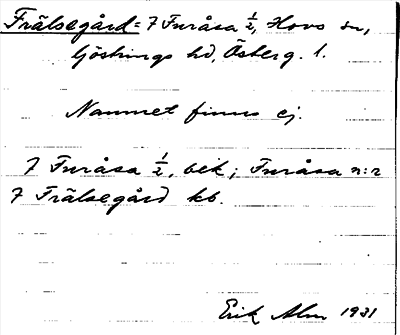 Frälsegård = 7 Furåsa ½, Hovs sn,
Göstrings hd, Österg. l.
Namnet finns ej.
7 Furåsa ½, bek; Furåsa n:r
7 Frälsegård kb.
Erik Alm 1931